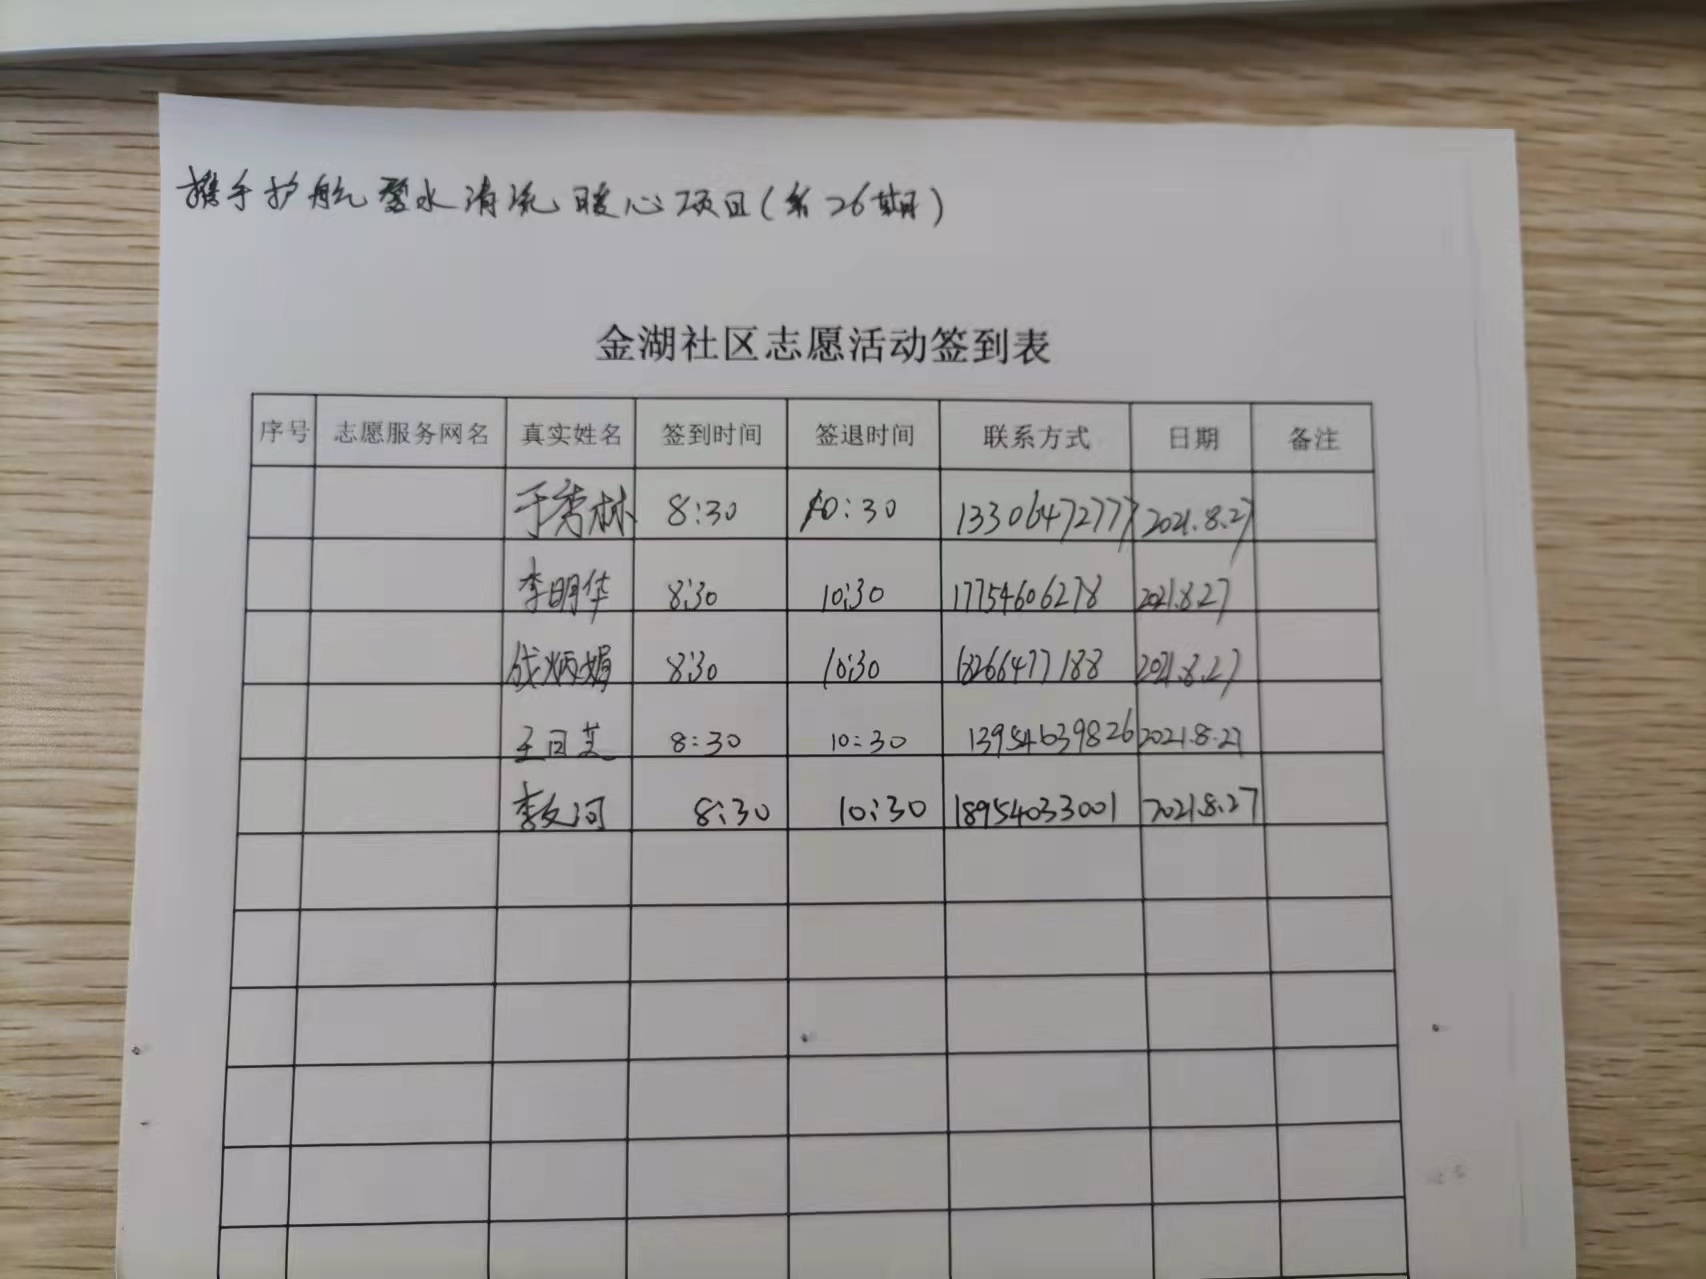 携手护航 碧水清流 暖心项目(第26期)
金湖社区志愿活动签到表
序号 志愿服务网名 真实姓名 签到时间 签退时间 联系方式 日期 备注
于秀林 8:30 10:30 13306472777 2021.8.27
李明华 8:30 10:30 17754606278 2021.8.27
战炳娟 8:30 10:30 18266477188 2021.8.27
王 8:30 10:30 13954639826 2021.8.27
李文河 8:30 10:30 18954033001 2021.8.27